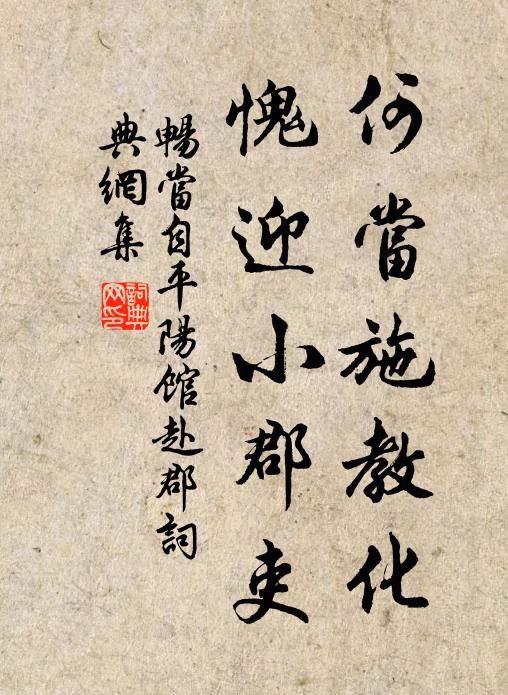 何當施教化
愧迎小郡吏
暢當自平陽館赴郡詞
典網集
詞典網印